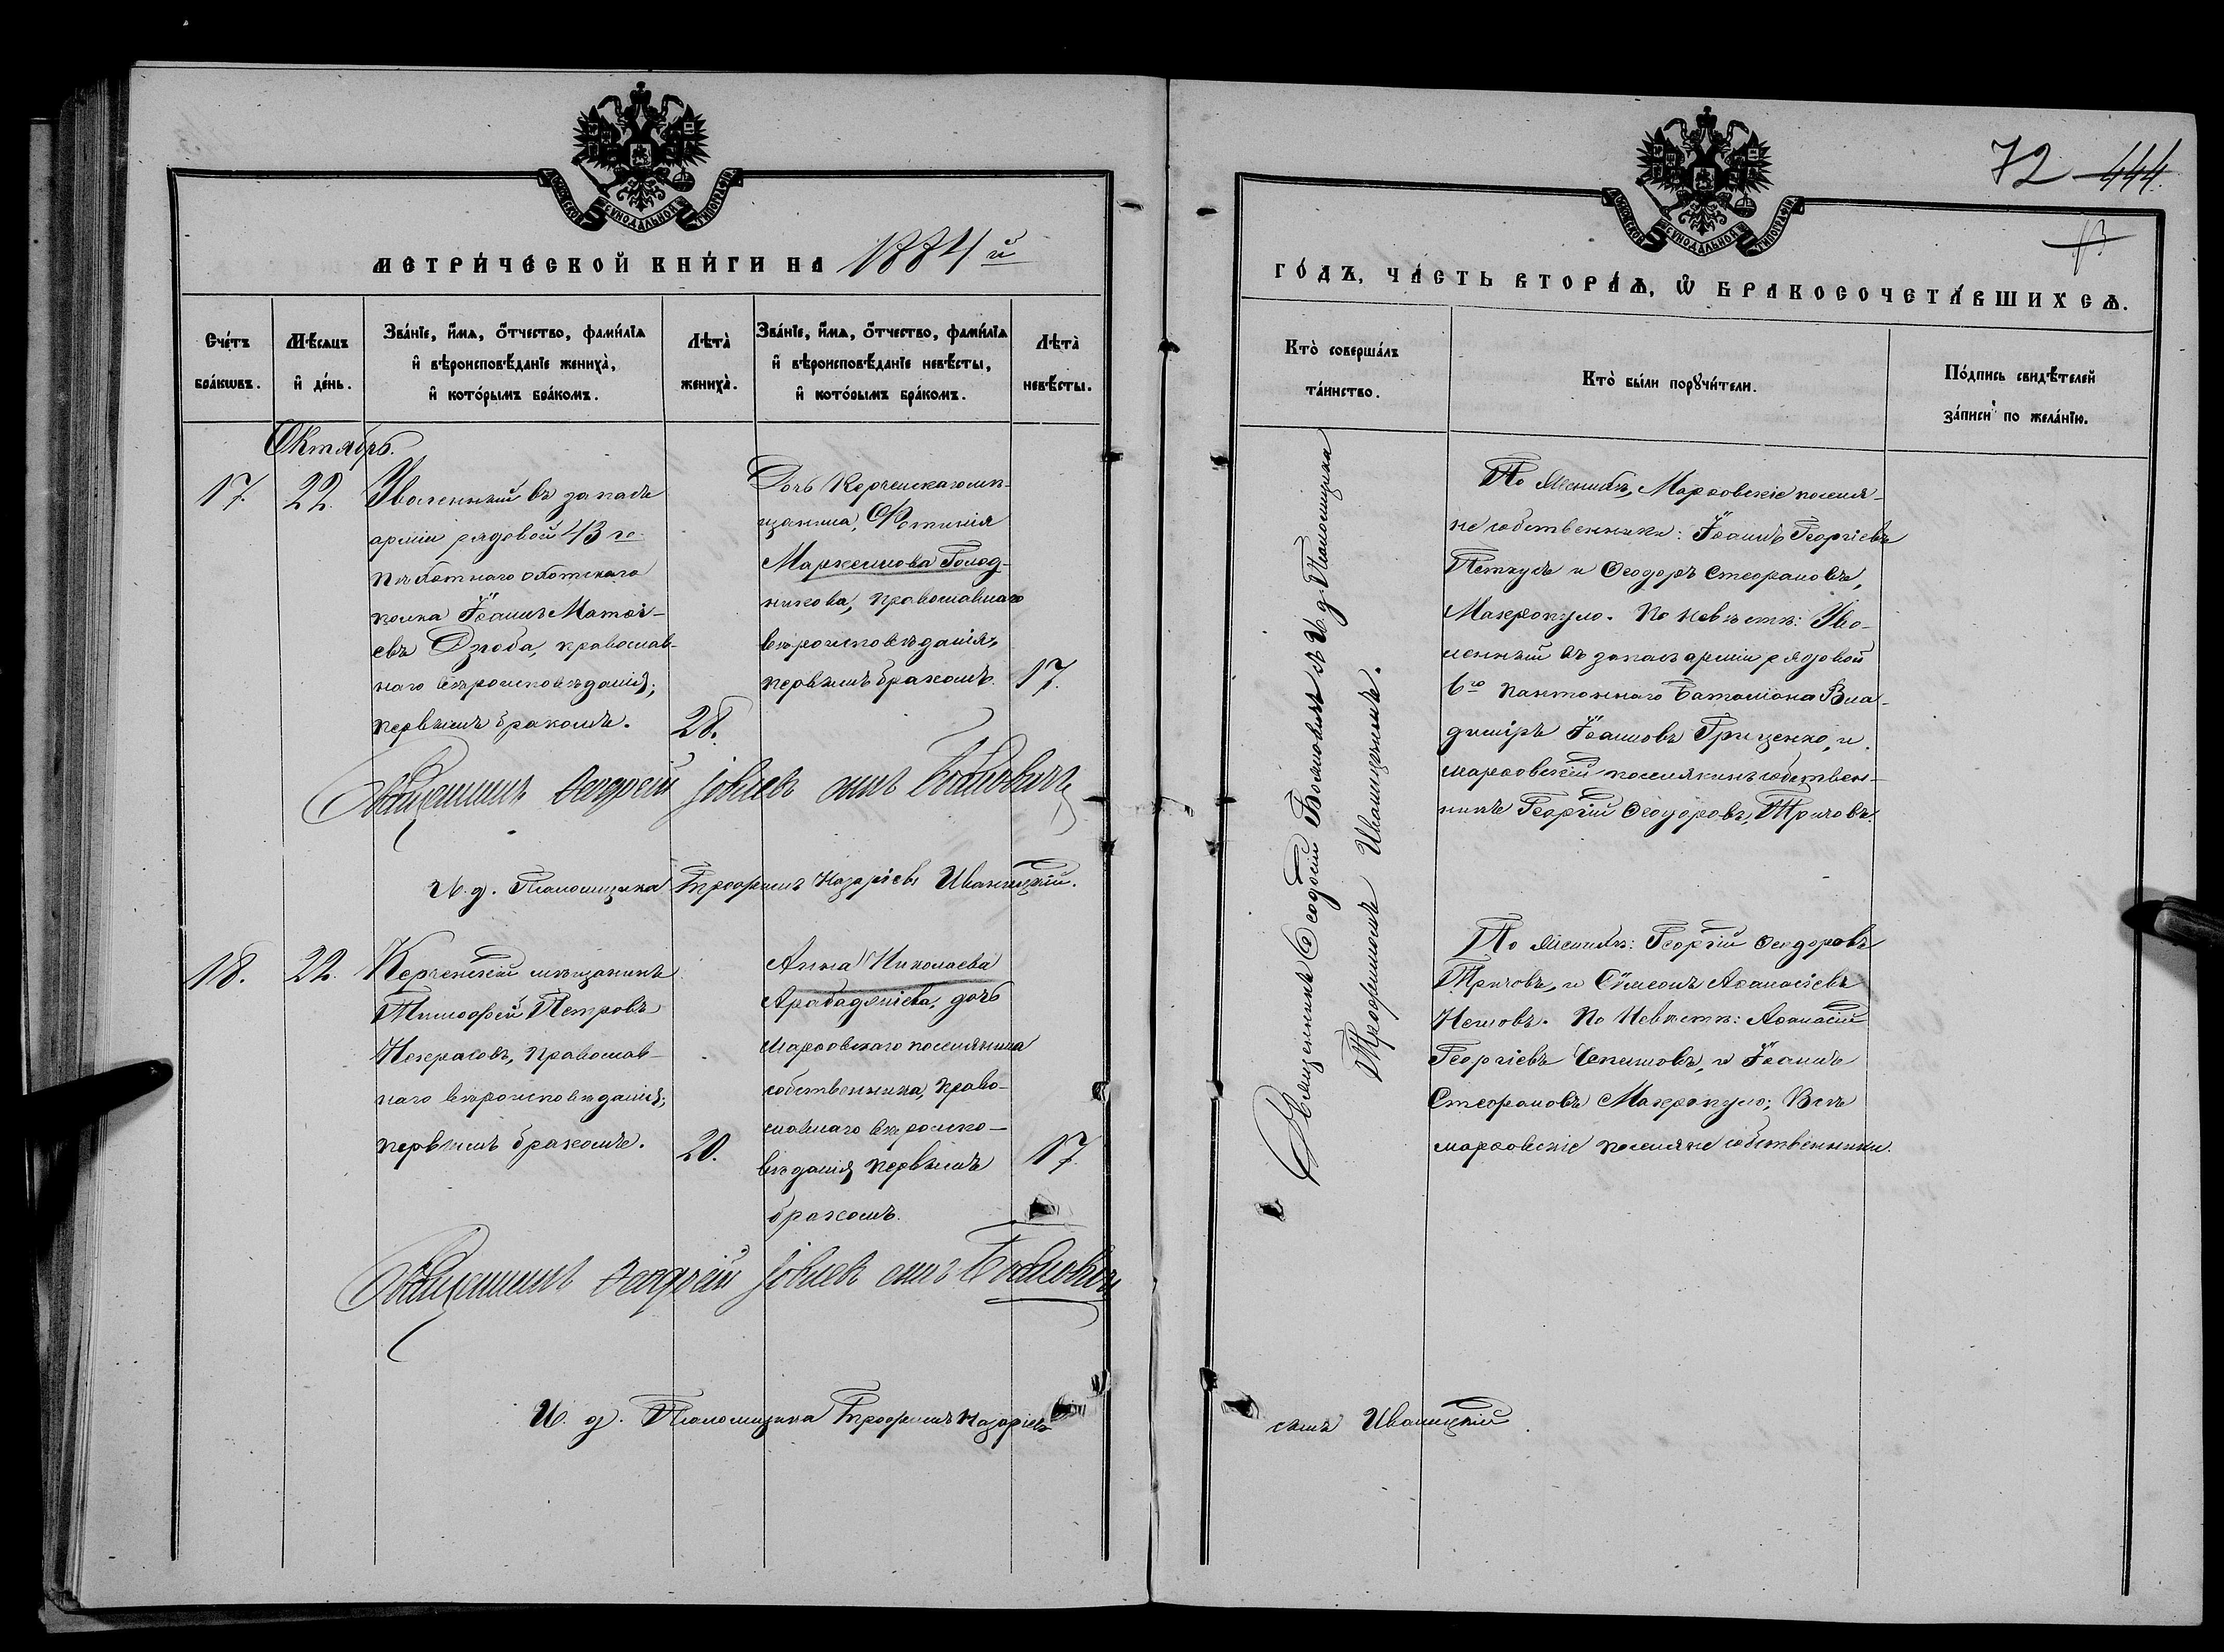 МОСКОВСКОЙ СѴНОДАЛЬНОЙ ТИПОГРАФІИ
МЕТРИ́ЧЕСКОЙ КНИ́ГИ НА 1884 й
Сче́тъ бра́кѡвъ.
Мѣ́сяцъ и҆ де́нь.
Зва́нїе, и҆́мѧ, ѻ҆́тчество, фами́лїѧ
и҆ вѣроисповѣ́данїе жениха̀,
и҆ кото́рымъ бра́комъ.
Лѣта̀ жениха̀.
Зва́нїе, и҆́мѧ, ѻ҆́тчество, фами́лїѧ
и҆ вѣроисповѣ́данїе невѣ́сты,
и҆ кото́рымъ бра́комъ.
Лѣта̀ невѣ́сты.
Октябрь.
17.
22.
Уволенный въ запасъ
арміи рядовой 43 го
пѣхотнаго охотскаго
полка Іоаннъ Матѳі-
евъ Дзюба, православ-
наго вѣроисповѣданія;
первымъ бракомъ.
28.
Дочь Керченскаго мѣ-
щанина, Фотинія
Маркеллова Голод-
никова, православнаго
вѣроисповѣданія,
первымъ бракомъ.
17.
Священникъ Ѳеодосій Іовлевъ сынъ Бояновичъ
И. д. Псаломщика Трофимъ Назаріевъ Иваницкій.
18.
22.
Керченскій мѣщанинъ
Тимофей Петровъ
Некрасовъ, православ-
наго вѣроисповѣданія;
первымъ бракомъ.
20.
Анна Николаева
Арабаджіева, дочь
Марѳовскаго поселянина
собственника, право-
славнаго вѣроиспо-
вѣданія первымъ
бракомъ.
17
Священникъ Ѳеодосій Іовлевъ сынъ Бояновичъ
И. д. Псаломщика Трофимъ Назаріевъ
72 444.
МОСКОВСКОЙ СѴНОДАЛЬНОЙ ТИПОГРАФІИ
ГО́ДЪ, ЧА́СТЬ ВТОРА́Ѧ, Ѽ БРАКОСОЧЕТА́ВШИХСѦ.
Кто̀ соверша́лъ
та́инство.
Кто̀ бы́ли порꙋчи́тели.
По́дпись свидѣ́телей
за́писи по жела́нїю.
Священникъ Ѳеодосій Бояновичъ съ И. д. Псаломщика
Трофимомъ Иваницкимъ.
По Женихѣ, Марѳовскіе поселя-
не собственники: Іоаннъ Георгіевъ
Петкулъ и Ѳеодоръ Стефановъ,
Макропуло. По невѣстѣ: Уво-
ленный въ запасъ арміи рядовой
6го понтоннаго Баталіона Вла-
диміръ Іоанновъ Гриценко, и
марѳовскій поселянинъ собствен-
никъ Георгій Ѳеодоровъ, Тричовъ.
По Женихѣ: Георгій Ѳеодоровъ
Тричовъ, и Сѵмеонъ Аѳанасіевъ
Неновъ. По Невѣстѣ: Аѳанасій
Георгіевъ, и Іоаннъ
Стефановъ Макропуло; Всѣ
марѳовскіе поселяне собственники.
сынъ Иваницкій